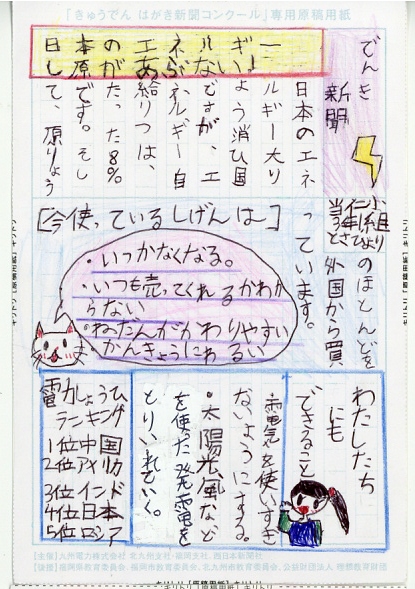 「きゅうでん はがき新聞コンクール」専用原稿用紙
でんき
新聞
日本のエネルギー
し原があぶない!
日本のエネ
ルギー大り
ょう消ひ国
ですが、エ
ネルギー自
給りつは、
たった8%
です。そし
て、原りょう
のほとんどを
外国から買
っています。
[今使っているしげんは]
・いつかなくなる。
・いつも売ってくれるかわか
らない
・ねだんがかわりやすい
・かんきょうにわるい
わたしたち
にも
できること
・電気を使いすぎ
ないようにする。
・太陽光、風など
を使った発電を
とりいれていく。
電力しょうひ
ランキング
1位中国
2位アメリカ
3位インド
4位日本
5位ロシア
【主催】九州電力株式会社 北九州支社・福岡支社、西日本新聞社
【後援】福岡県教育委員会、福岡市教育委員会、北九州市教育委員会、公益財団法人 理想教育財団
キリトリ【原稿用紙】キリトリ